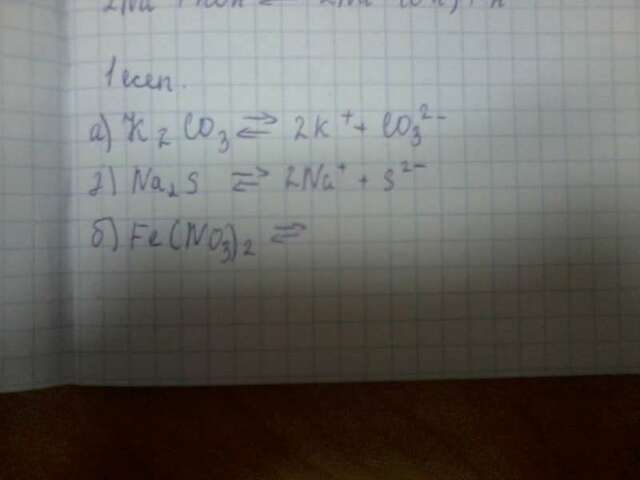 1 есеп.
а) K₂CO₃ ⇌ 2K⁺ + CO₃²⁻
г) Na₂S ⇌ 2Na⁺ + S²⁻
б) Fe(NO₃)₂ ⇌